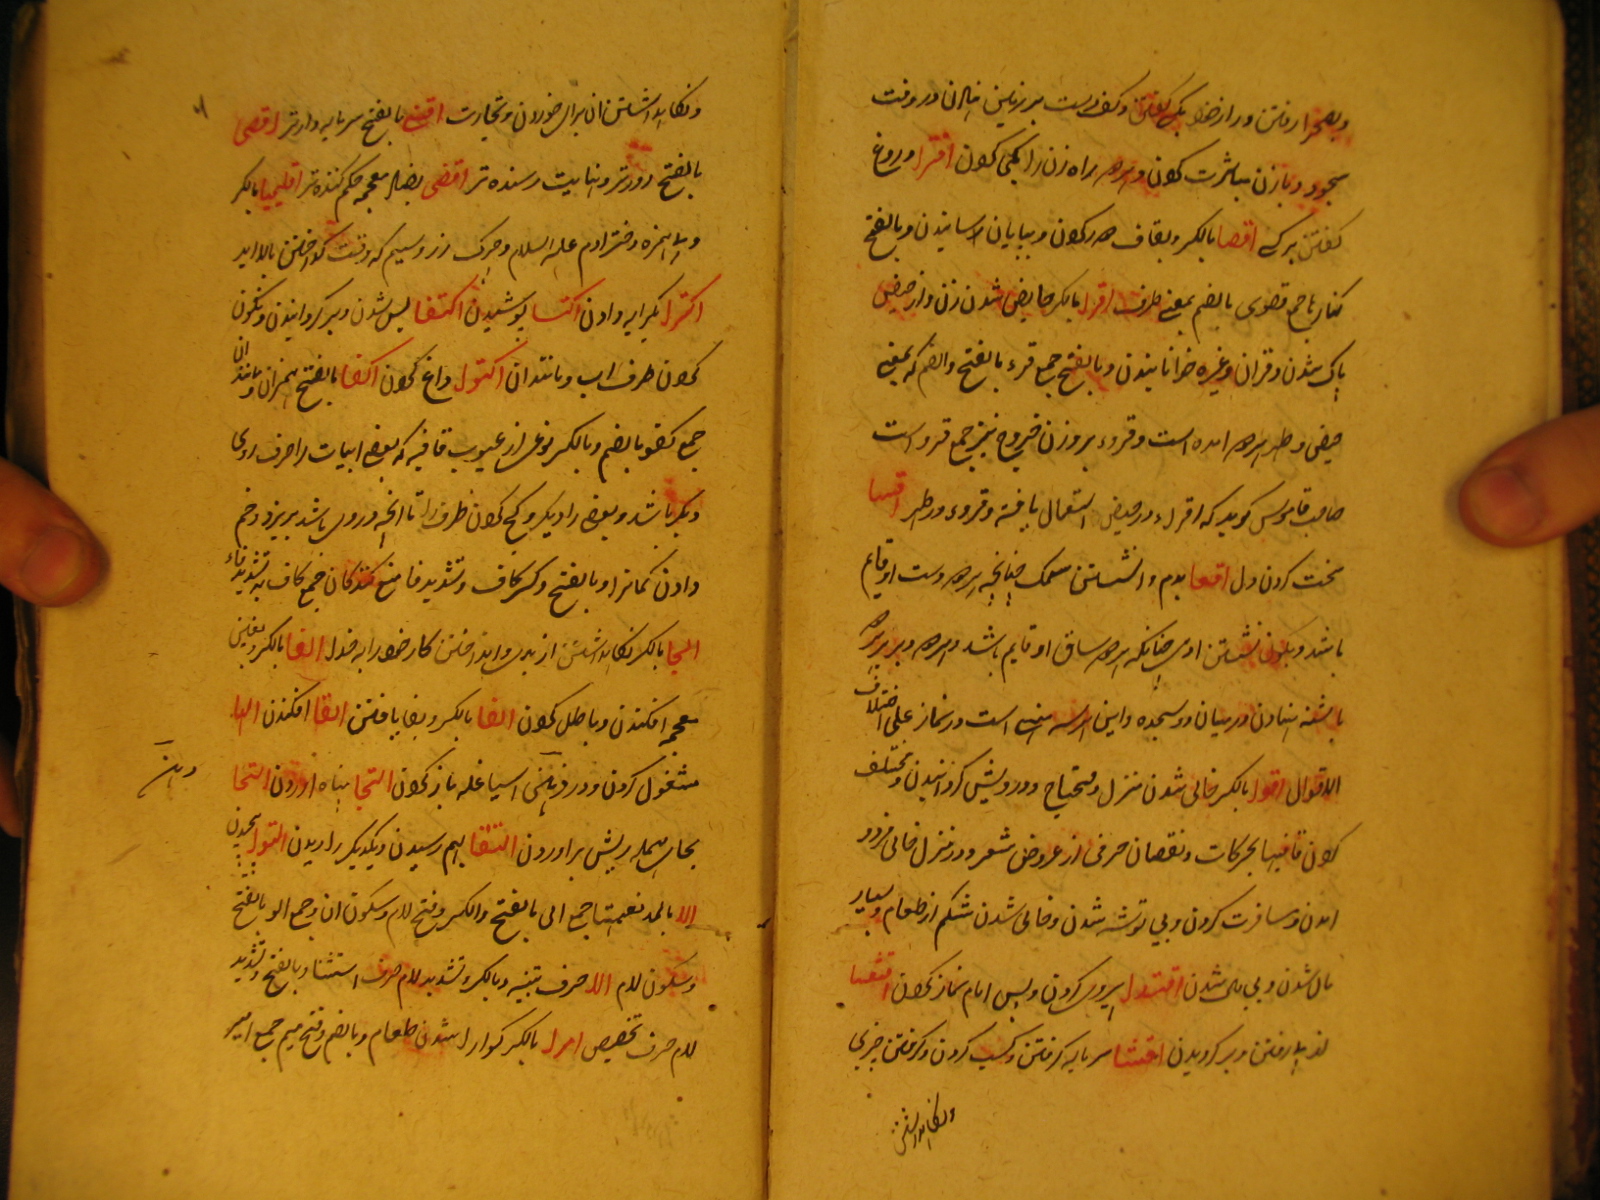 وبصحرا رفتن و راز خود بکسی گفتن و کف دست بر زمین نهادن در وقت
سجود و با زن مباشرت کردن و هر دو راه زن را یکی کردن افترا دروغ
گفتن بر کسی اقصا بالکسر و بقاف دور کردن و بپایان رسانیدن و بالفتح
کنارها جمع قصوی بالضم بمعنی طرف اقرا بالکسر حایض شدن زن و از حیض
پاک شدن و قران و غیره خوانانیدن و بالفتح جمع قرء بالفتح والضم که بمعنی
حیض و طهر هر دو امده است و قروء بر وزن خروج نیز جمع قرو است
صاحب قاموس گوید که اقراء در حیض استعمال یافته و قروء در طهر اقسا
سخت کردن دل اقعا بدم وا نشستن سگ چنانچه هر دو دست او قایم
باشد و بکون نشستن ادمی چنانکه هر دو ساق او قایم باشد و هر دو سرین بر هر دو
پاشنه نهادن در میان دو سجده و این هر سه منهی است در نماز علی اختلاف
الاقوال اقوا بالکسر خالی شدن منزل و محتاج و درویش گردانیدن و مختلف
کردن قافیها بحرکات و نقصان حرفی از عروض شعر و در منزل خالی فرود
امدن و مسافرت کردن و بی توشه شدن و خالی شدن شکم از طعام و بسیار
مال شدن و بی مال شدن اقتدا پیروی کردن و پس امام نماز کردن اقتفا
از پی رفتن و بر گزیدن اقتنا سرمایه گرفتن و کسب کردن و گرفتن چیزی
و نگاهداشتن
و نگاهداشتن ان برای خوردن و تجارت اقنی بالفتح سرمایه دارتر اقصی
بالفتح دورتر و نهایت رسنده تر اقضی بضاد معجمه حکم کننده تر اقلیمیا بالکسر
همزه دختر ادم علیه السلام و چرک زر و سیم که وقت گداختن بالا اید
اکترا بکرایه دادن اکتسا پوشیدن اکتفا بس شدن و بر گردانیدن و نگون
کردن ظرف اب و مانند ان اکتوا داغ کردن اکفا بالفتح همسران و مانند ان
جمع کفو بالضم و بالکسر نوعی از عیوب قافیه که بعضی ابیات را حرف روی
دیگر باشد و بعضی را دیگر و کج کردن ظرف را تا انچه در وی باشد بریزد و خم
دادن کمان را و بالفتح و کسر کاف و تشدید فا منع کنندگان جمع کاف به تشدید فاء
الجا بالکسر نگاهداشتن از بدی و انداختن کار خود را به خدا الغا بالکسر و بغین
معجمه افکندن و باطل کردن الفا بالکسر و بفا یافتن القا افکندن الها
مشغول کردن و در دهن اسیا غله باز کردن التجا پناه اوردن التحا
بحای مهمله ریش براوردن التقا بهم رسیدن و یکدیگر را دیدن التوا پیچیدن
الا بالمد نعمتها جمع الی بالفتح والکسر و فتح لام و سکون ان و جمع الو بالفتح
و سکون لام الا حرف تنبیه و بالکسر و تشدید لام حرف استثنا و بالفتح و تشدید
لام حرف تخصیص امرا بالکسر گوارا شدن طعام و بالضم و فتح میم جمع امیر
دهن